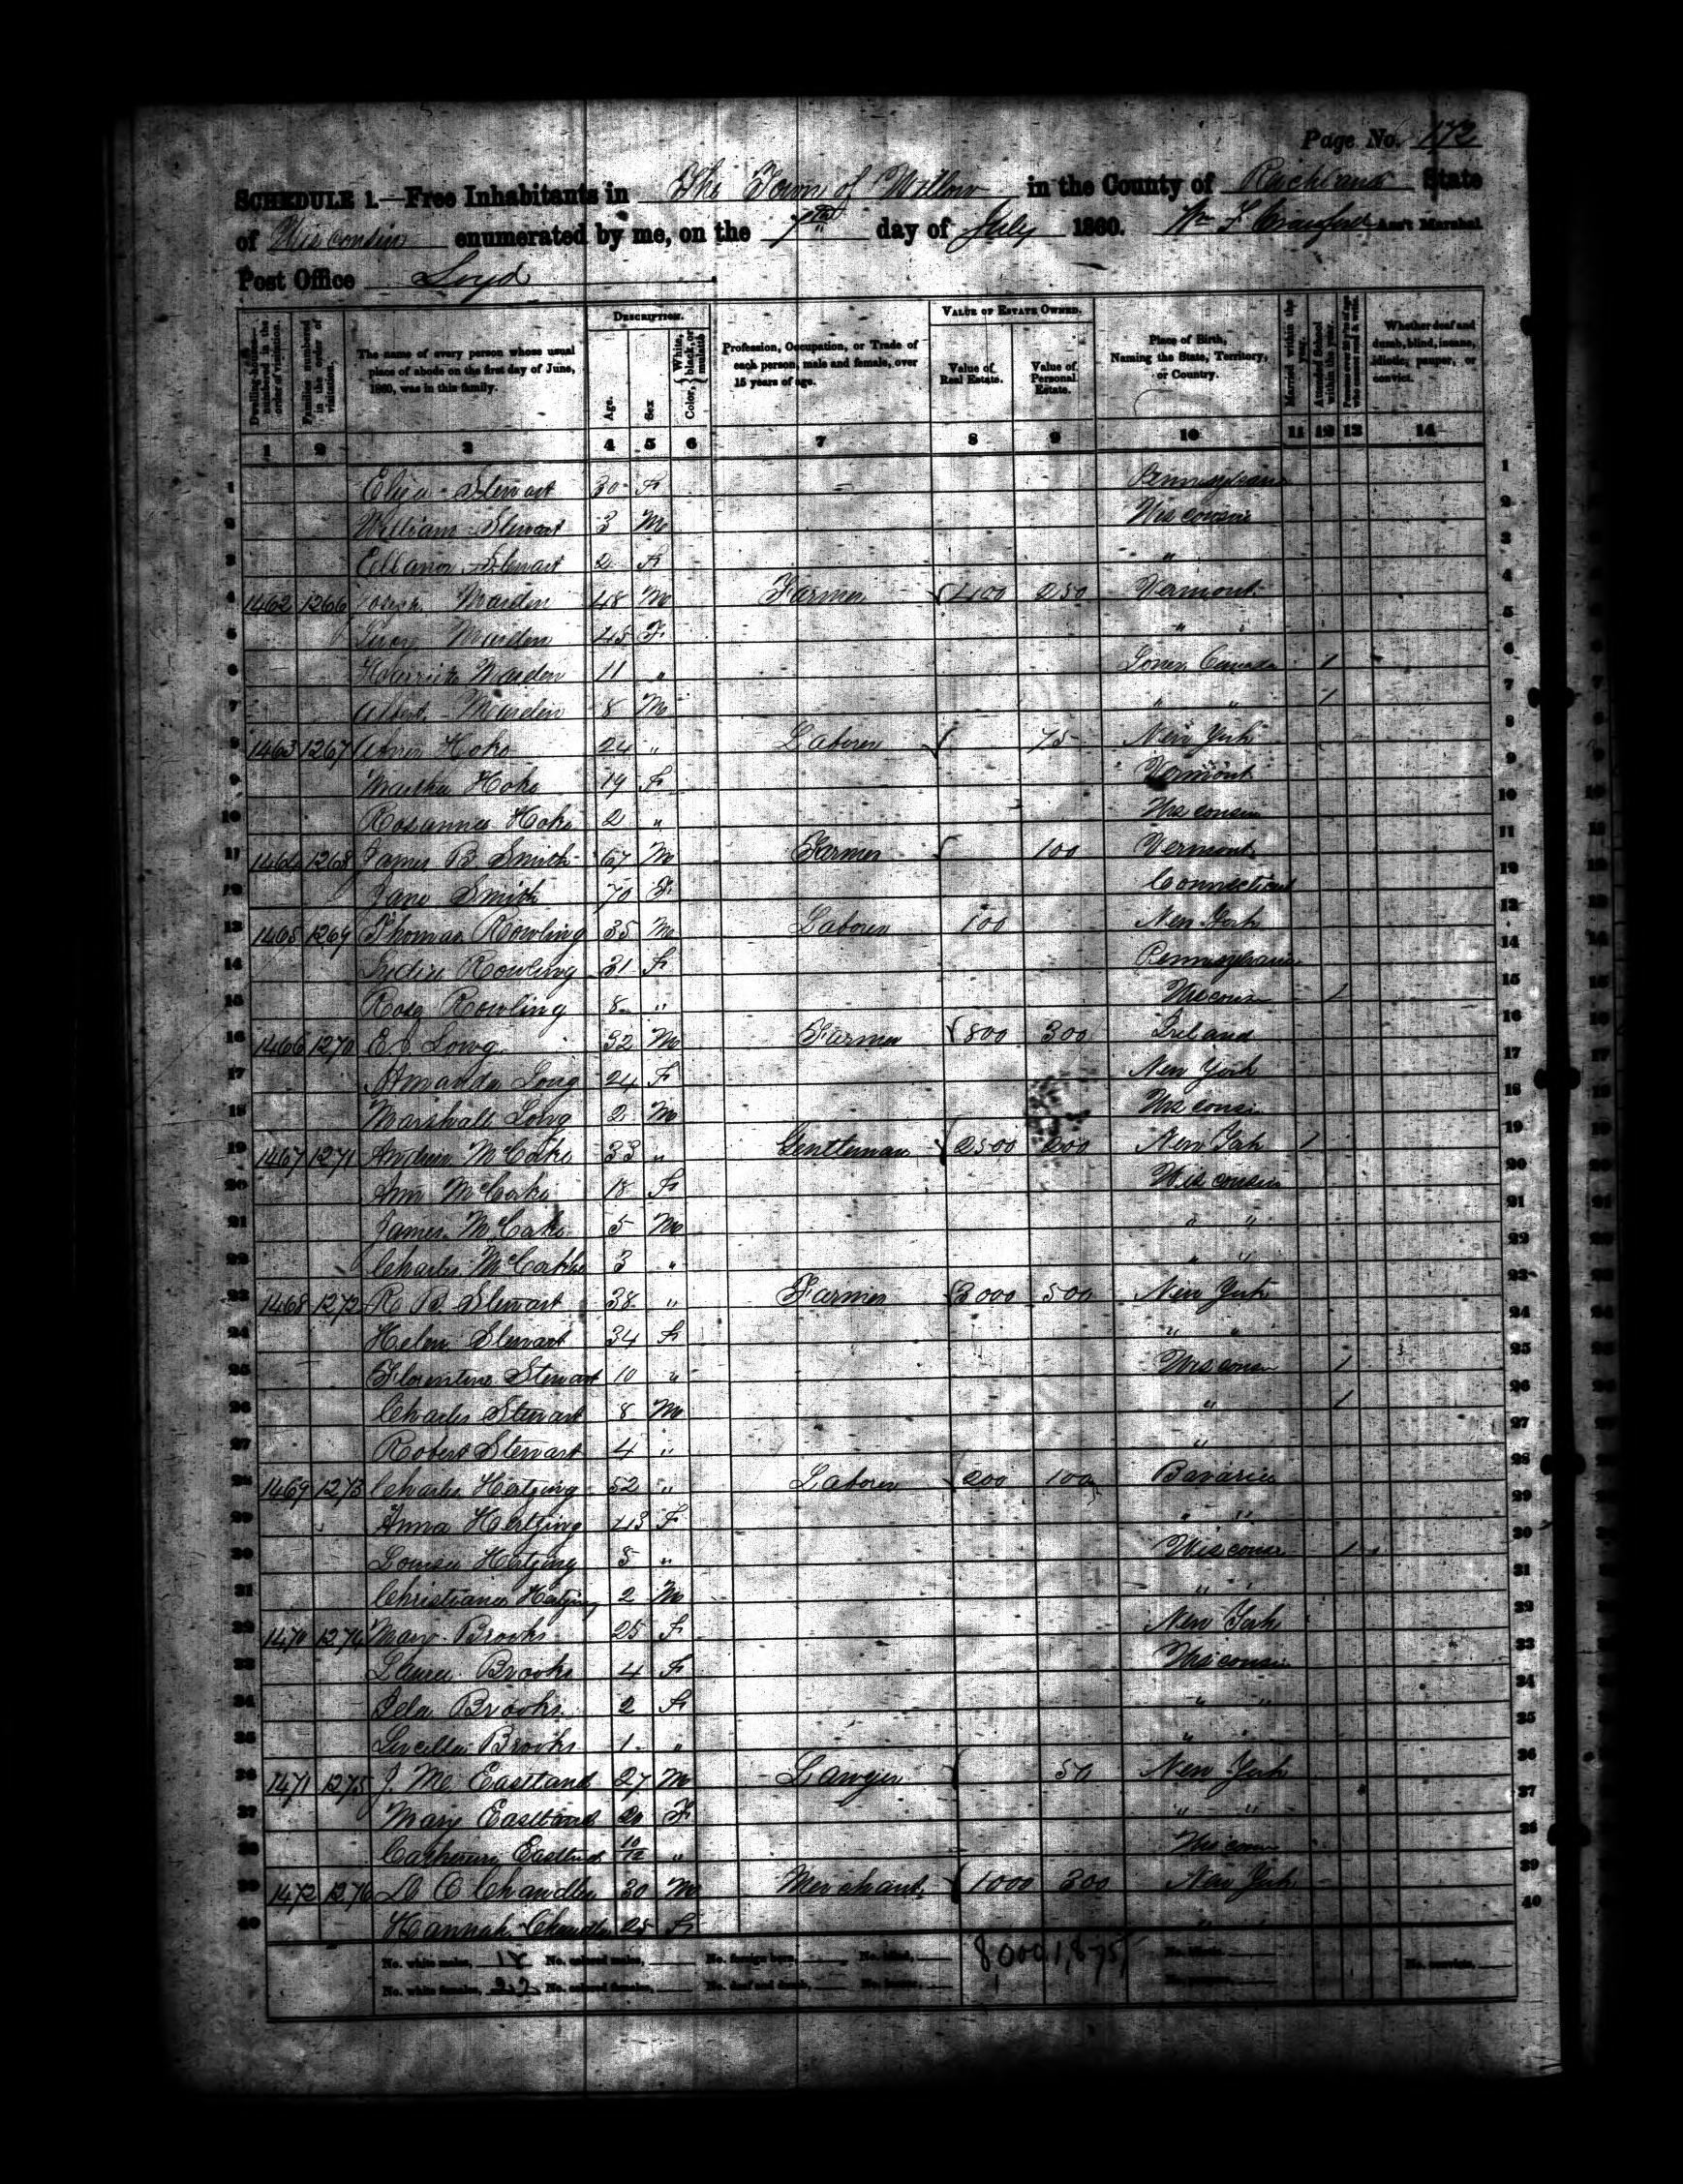 Page No. 172
SCHEDULE 1.—Free Inhabitants in The Town of Willow in the County of Richland State
of Wisconsin enumerated by me, on the day of July 1860. Wm Crawford Ass't Marshal.
Post Office Loyd
DESCRIPTION. VALUE OF ESTATE OWNED.
Dwelling-houses—numbered in the order of visitation. Families numbered in the order of visitation. The name of every person whose usual place of abode on the first day of June, 1860, was in this family. Age. Sex Color, {White, black, or mulatto Profession, Occupation, or Trade of each person, male and female, over 15 years of age. Value of Real Estate. Value of Personal Estate. Place of Birth, Naming the State, Territory, or Country. Married within the year. Attended School within the year. Persons over 20 y'rs of age who cannot read & write. Whether deaf and dumb, blind, insane, idiotic, pauper, or convict.
1 2 3 4 5 6 7 8 9 10 11 12 13 14
1 Eliza Stewart 30 F Pennsylvania 1
2 William Stewart 3 M Wisconsin 2
3 Ellanor Stewart 2 F " 3
4 1462 1266 Joseph Marden 48 M Farmer 400 250 Vermont 4
5 Lucy Marden 45 F " 5
6 Harriet Marden 11 " Lower Canada 1 6
7 Albert Marden 8 M " " 1 7
8 1463 1267 Abner Hoke 24 " Laborer 75 New York 8
9 Martha Hoke 19 F Vermont 9
10 Rosanna Hoke 2 " Wisconsin 10
11 1464 1268 James B Smith 67 M Farmer 100 Vermont 11
12 Jane Smith 70 F Connecticut 12
13 1465 1269 Thomas Rowling 35 M Laborer 100 New York 13
14 Lydia Rowling 31 F Pennsylvania 14
15 Rosa Rowling 8 " Wisconsin 1 15
16 1466 1270 E J Long 32 M Farmer 800 300 Ireland 16
17 Amanda Long 24 F New York 17
18 Marshall Long 2 M Wisconsin 18
19 1467 1271 Andrew McCake 33 " Gentleman 2500 200 New York 1 19
20 Ann McCake 18 F Wisconsin 20
21 James McCake 5 M " " 21
22 Charles 3 " " " 22
23 1468 1272 R B Stewart 38 " Farmer 3000 500 New York 23
24 Helen Stewart 34 F " " 24
25 Florentine Stewart 10 " Wisconsin 1 25
26 Charles Stewart 8 M " 1 26
27 Robert Stewart 4 " " 27
28 1469 1273 Charles Hertzing 52 " Laborer 200 100 Bavaria 28
29 Anna Hertzing 43 F " " 29
30 Louisa Hertzing 5 " Wisconsin 1 30
31 Christiana Hertzing 2 M " " 31
32 1470 1274 Mary Brooks 25 F New York 32
33 Laura Brooks 4 F Wisconsin 33
34 Brooks 2 F " " 34
35 Brooks 1 " " " 35
36 1471 1275 J Mc Eastland 27 M Lawyer 50 New York 36
37 Mary Eastland 20 F " " 37
38 Catherine Eastland 10/12 " Wisconsin 38
39 1472 1276 Chandler 30 M Merchant 1000 300 New York 39
40 Hannah Chandler 25 F " 40
No. white males, No. colored males, No. foreign born, No. blind, 8,000 1,875 No. idiotic,
No. white females, 22 No. colored females, No. deaf and dumb, No. insane, No. paupers, No. convicts,